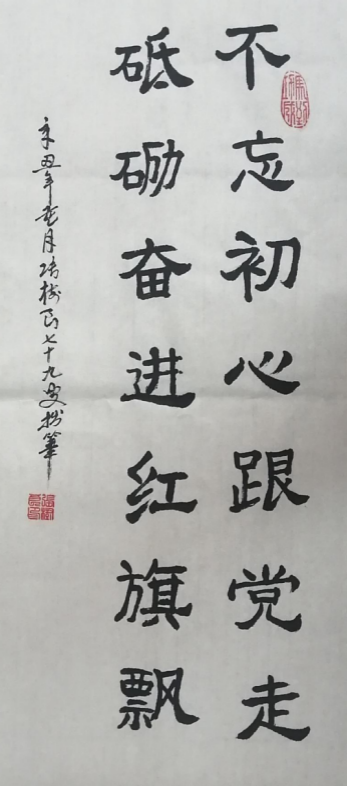 不忘初心跟党走
砥砺奋进红旗飘
辛丑年 月张树 七十九叟拙笔